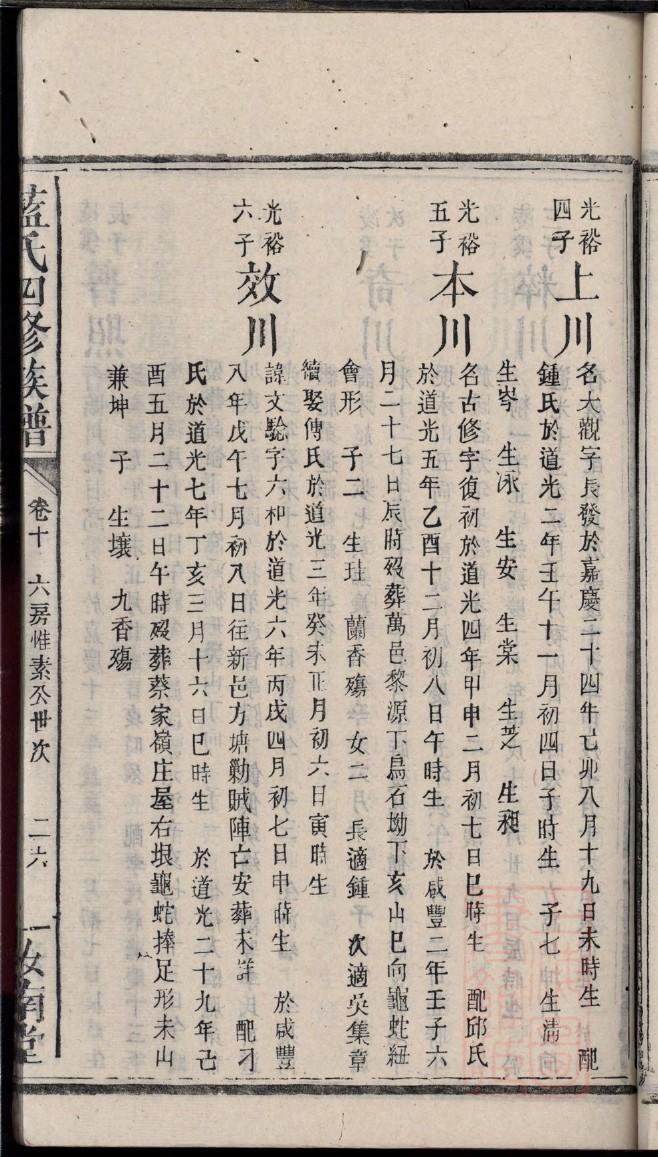 光裕四子
上川
名大觀字長發於嘉慶二十四年己卯八月十九日未時生 配
鍾氏於道光二年壬午十一月初四日子時生 子七 生淸
生岑 生泳 生安 生棠 生芝 生昶
光裕五子
本川
名古修字復初於道光四年甲申二月初七日巳時生 配邱氏
於道光五年乙酉十二月初八日午時生 於咸豐二年壬子六
月二十七日辰時歿葬萬邑黎源下烏石坳下亥山巳向龜蛇紐
會形 子二 生珪 蘭香殤 女二 長適鍾 次適吳集章
續娶傅氏於道光三年癸未正月初六日寅時生
光裕六子
效川
諱文驗字六和於道光六年丙戌四月初七日申時生 於咸豐
八年戊午七月初八日往新邑方塘勦賊陣亡安葬未詳 配刁
氏於道光七年丁亥三月十六日巳時生 於道光二十九年己
酉五月二十二日午時歿葬蔡家嶺庄屋右垠龜蛇捧足形未山
兼坤 子 生壤 九香殤
藍氏四修族譜 卷十 六房惟素公世次 二六 汝南堂